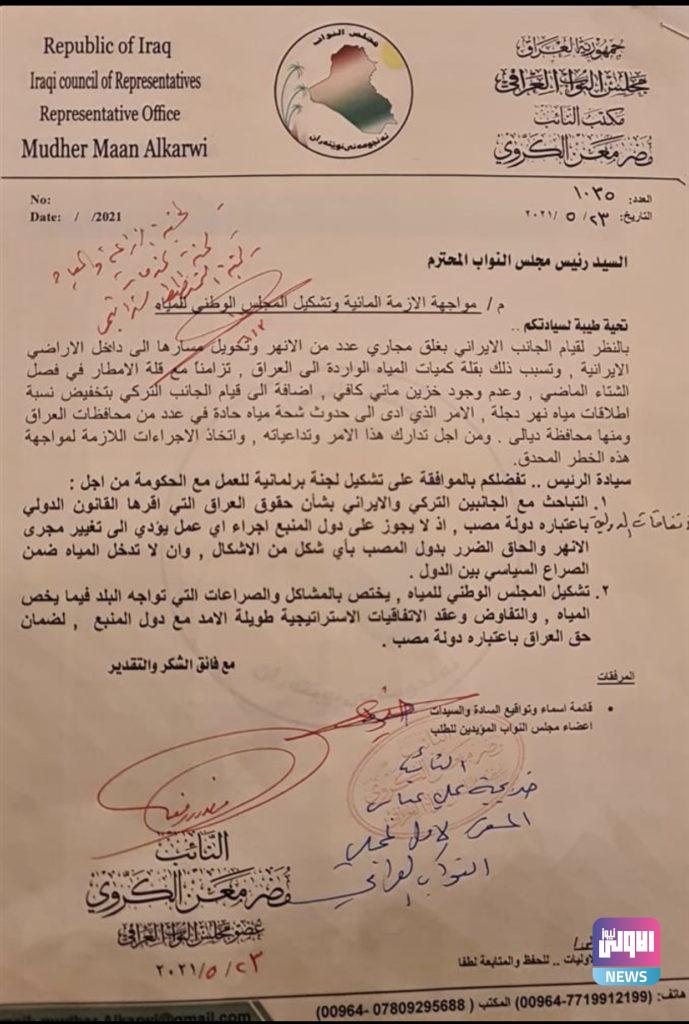 Republic of Iraq
Iraqi council of Representatives
Representative Office
Mudher Maan Alkarwi
مجلس النواب
ئەنجومەنى نوێنەران
جمهورية العراق
مجلس النواب العراقي
مكتب النائب
مضر معن الكروي
No:
Date: / /2021
العدد: ١٠٣٥
التاريخ: ٢٣ / ٥ /٢٠٢١
السيد رئيس مجلس النواب المحترم
م / مواجهة الازمة المائية وتشكيل المجلس الوطني للمياه
تحية طيبة لسيادتكم ..
بالنظر لقيام الجانب الايراني بغلق مجاري عدد من الانهر وتحويل مسارها الى داخل الاراضي
الايرانية , وتسبب ذلك بقلة كميات المياه الواردة الى العراق , تزامناً مع قلة الامطار في فصل
الشتاء الماضي , وعدم وجود خزين مائي كافي , اضافة الى قيام الجانب التركي بتخفيض نسبة
اطلاقات مياه نهر دجلة , الامر الذي ادى الى حدوث شحة مياه حادة في عدد من محافظات العراق
ومنها محافظة ديالى . ومن اجل تدارك هذا الامر وتداعياته , واتخاذ الاجراءات اللازمة لمواجهة
هذه الخطر المحدق.
سيادة الرئيس .. تفضلكم بالموافقة على تشكيل لجنة برلمانية للعمل مع الحكومة من اجل :
١. التباحث مع الجانبين التركي والايراني بشأن حقوق العراق التي اقرها القانون الدولي
باعتباره دولة مصب , اذ لا يجوز على دول المنبع اجراء اي عمل يؤدي الى تغيير مجرى
الانهر والحاق الضرر بدول المصب بأي شكل من الاشكال , وان لا تدخل المياه ضمن
الصراع السياسي بين الدول .
٢. تشكيل المجلس الوطني للمياه , يختص بالمشاكل والصراعات التي تواجه البلد فيما يخص
المياه , والتفاوض وعقد الاتفاقيات الاستراتيجية طويلة الامد مع دول المنبع , لضمان
حق العراق باعتباره دولة مصب .
مع فائق الشكر والتقدير
المرفقات
• قائمة اسماء وتواقيع السادة والسيدات
اعضاء مجلس النواب المؤيدين للطلب
النائب
خديجة علي عباس
المقرر الاول لمجلس
النواب العراقي
النائب
مضر معن الكروي
عضو مجلس النواب العراقي
٢٠٢١/٥/٢٣
الاوليات .. للحفظ والمتابعة لطفا
الاولى نيوز
NEWS
هاتف: (00964-7719912199) المكتب ( 00964- 07809295688)
mudhar.Alkarwi@gmail.com